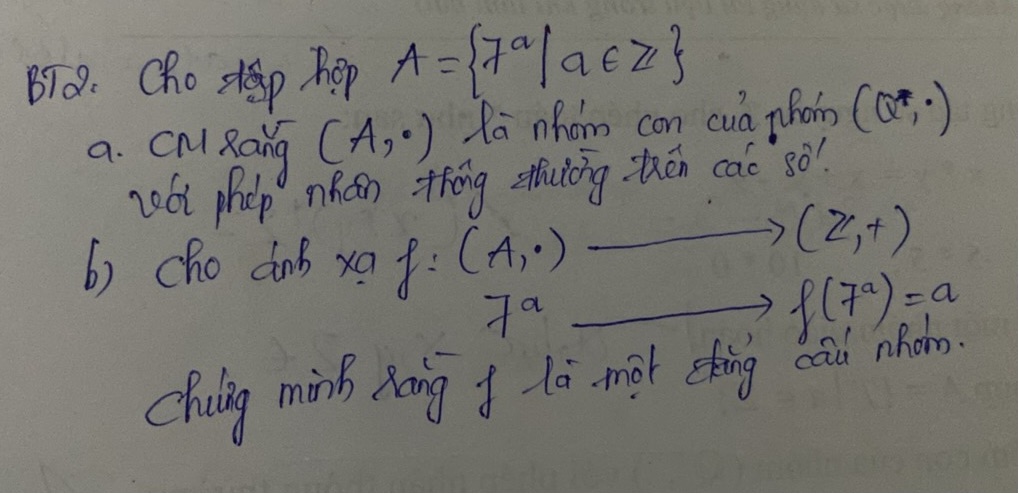 BT2. Cho tập hợp A = {7^a | a ∈ Z}
a. CM rằng (A, •) là nhóm con của nhóm (Q*, •)
với phép nhân thông thường trên các số.
b) Cho ánh xạ f: (A, •) ⟶ (Z, +)
7^a ⟶ f(7^a) = a
Chứng minh rằng f là một đẳng cấu nhóm.